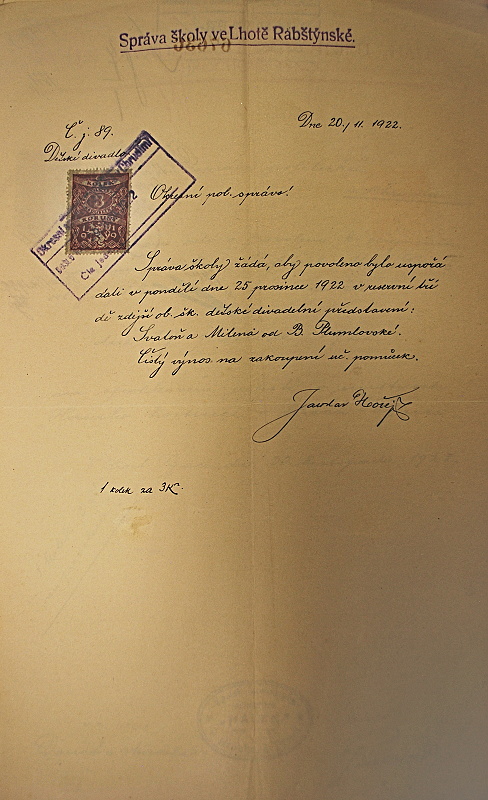 Správa školy ve Lhotě Rabštýnské.
Č. j. 89.
Dne 20./11. 1922.
Dětské divadlo
KOLEK
3
KORUNY
Okresní pol. správě!
Správa školy žádá, aby povoleno bylo uspořá
dati v pondělí dne 25 prosince 1922 v reservní tří
dě zdejší ob. šk. dětské divadelní představení:
Svatoň a Milena od B. Plumlovské.
Čistý výnos na zakoupení uč. pomůcek.
Jaroslav Hořejš
1 kolek za 3K.